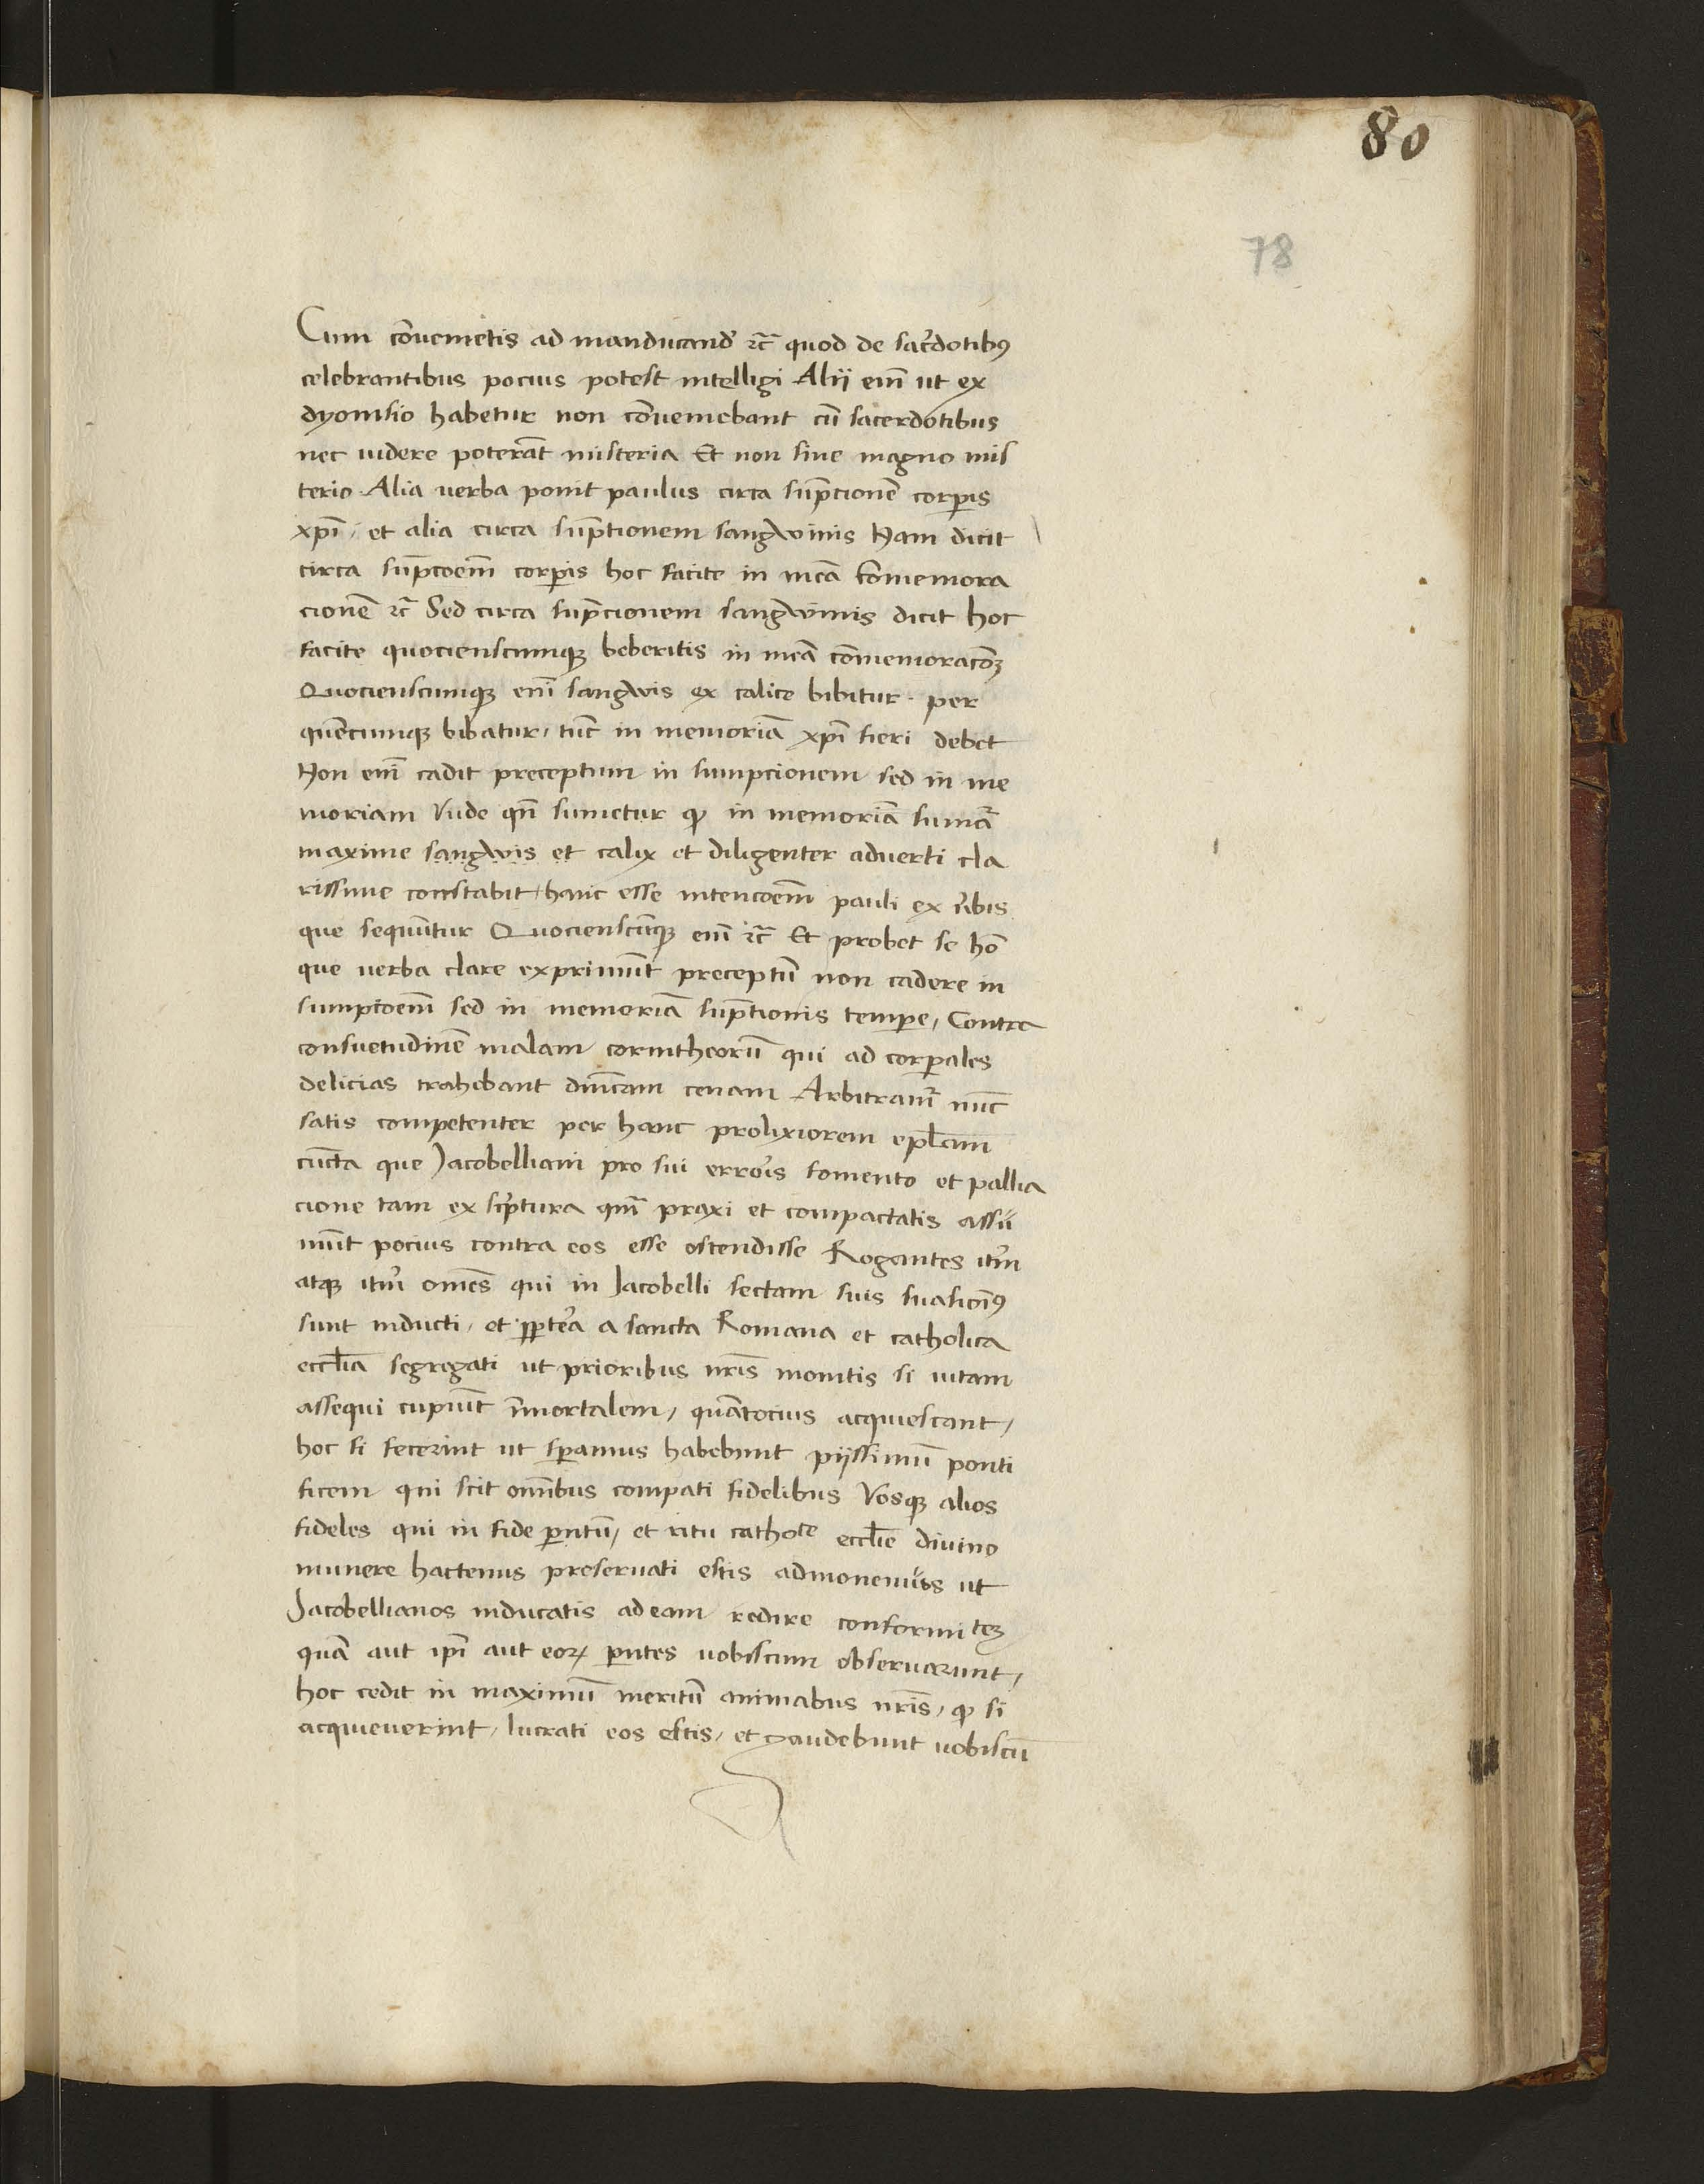 80
78
Cum co̅uenietis ad manducand̅ ⁊c̅ quod de sac̅dotibꝰ
celebrantibus pocius potest intelligi Alii eni̅ ut ex
dyonisio habetur non co̅ueniebant cu̅ sacerdotibus
nec uidere potera̅t misteria Et non sine magno mis
terio Alia uerba ponit paulus circa su̅pcione̅ corpis
xp̅i / et alia circa su̅ptionem sangwinis Nam dicit
circa su̅pcoem̅ corpis hoc facite in mea̅ co̅memora
cione̅ ⁊c̅ Sed circa su̅pcionem sangwinis dicit hoc
facite quocienscumqꝫ biberitis in mea̅ co̅memoraco̅ꝫ
Quocienscumqꝫ eni̅ sangwis ex calice bibitur . per
que̅cumqꝫ bibatur / tu̅c in memoria̅ xp̅i fieri debet
Non eni̅ cadit preceptum in sumpcionem sed in me
moriam Vnde qn̅ sumetur ꝙ in memoria̅ suma̅t
maxime sangwis et calix et diligenter aduerti cla
rissime constabit / hanc esse intencoem̅ pauli ex v̅bis
que sequu̅tur Quociensc̅umqꝫ eni̅ ⁊c̅ Et probet se ho̅
que uerba clare exprimu̅t preceptu̅ non cadere in
sumpcoem̅ sed in memoria̅ su̅ptionis tempe / Contra
consuetudine̅ malam corintheoru̅ qui ad corpales
delicias trahebant dni̅cam cenam Arbitram̅r nu̅c
satis competenter per hanc prolixiorem epl̅am
cu̅cta que Jacobelliani pro sui erro̅is fomento et pallia
cione tam ex sc̅ptura qm̅ praxi et compactatis assu
mu̅t pocius contra eos esse ostendisse Rogantes ite̅rm
atqꝫ ite̅rm om̅es qui in Jacobelli sectam suis suasio̅ibꝰ
sunt inducti / et ꝓpte̅a a sancta Romana et catholica
eccl̅ia segregati ut prioribus nr̅is monitis si uitam
assequi cupiu̅t i̅mortalem / qua̅tocius acquiescant /
hoc si fecerint ut speramus habebunt piissimu̅ ponti
ficem qui scit om̅ibus compati fidelibus Vosqꝫ alios
fideles qui in fide pare̅ntu̅ / et ritu cathoce eccl̅ie diuino
munere hactenus preseruati estis admonemus ut
Jacobellianos inducatis ad eam redire conformiteꝫ
qua̅ aut ip̅i aut eorꝝ pa̅rntes uobiscum obseruarunt /
hoc cedit in maximu̅ meritu̅ animabus nr̅is / ꝙ si
acquieuerint / lucrati eos estis / et gaudebunt uobiscu̅